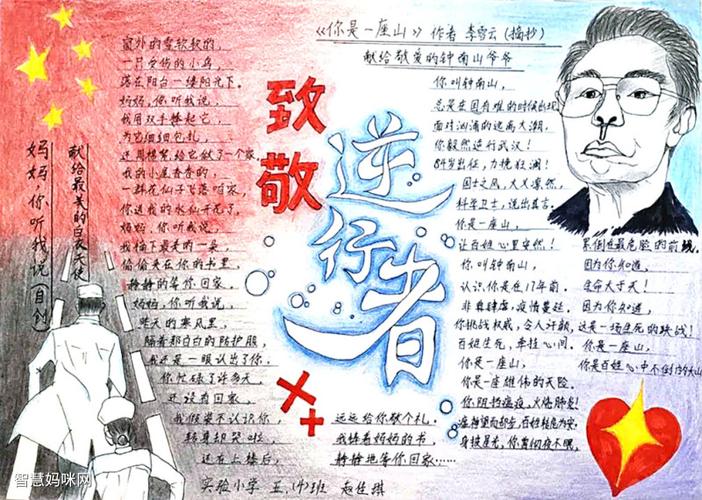 妈妈，你听我说（自创）
献给最美的白衣天使
窗外的雪软软的，
一只受伤的小鸟，
落在阳台一缕阳光下。
妈妈，你听我说，
我用双手捧起它，
为它细细包扎，
还用棉絮给它做了一个家。
我的小屋香香的，
一群花仙子飞落咱家，
你送我的水仙开花了，
妈妈，你听我说，
我摘下最美的一朵，
偷偷夹在你的书里，
静静的等你回家。
妈妈，你听我说，
昨天的寒风里，
隔着那白白的防护服，
我还是一眼认出了你，
你忙碌了许多天，
还没有回家，
我假装不认识你，
转身却哭啦，
还在上楼后，
远远给你敬个礼。
我捧着妈妈的书，
静静地等你回家……
致敬
逆行者
《你是一座山》作者 李雪云（摘抄）
献给敬爱的钟南山爷爷
你叫钟南山，
总是在国有难的时候出现，
面对汹涌的逃离大潮，
你毅然逆行武汉！
84岁出征，力挽狂澜！
国士之风，大义凛然，
科学卫士，说出真言。
你是一座山，
让百姓心里安然！
你叫钟南山，
认识你是在17年前。
非典肆虐，疫情蔓延，
你挑战权威，令人汗颜，
百姓生死，牵挂心间。
你是一座山，
你是一座雄伟的天险。
你阻挡瘟疫，火烙肺炎！
身披星光，你贯彻夜不眠，
累倒在最危险的前线。
因为你知道，
生命大于天！
因为你知道，
这是一场生死的决战！
你是一座山，
你是百姓心中不倒的大山
实验小学 五.（4）班 赵佳琪
智慧妈咪网